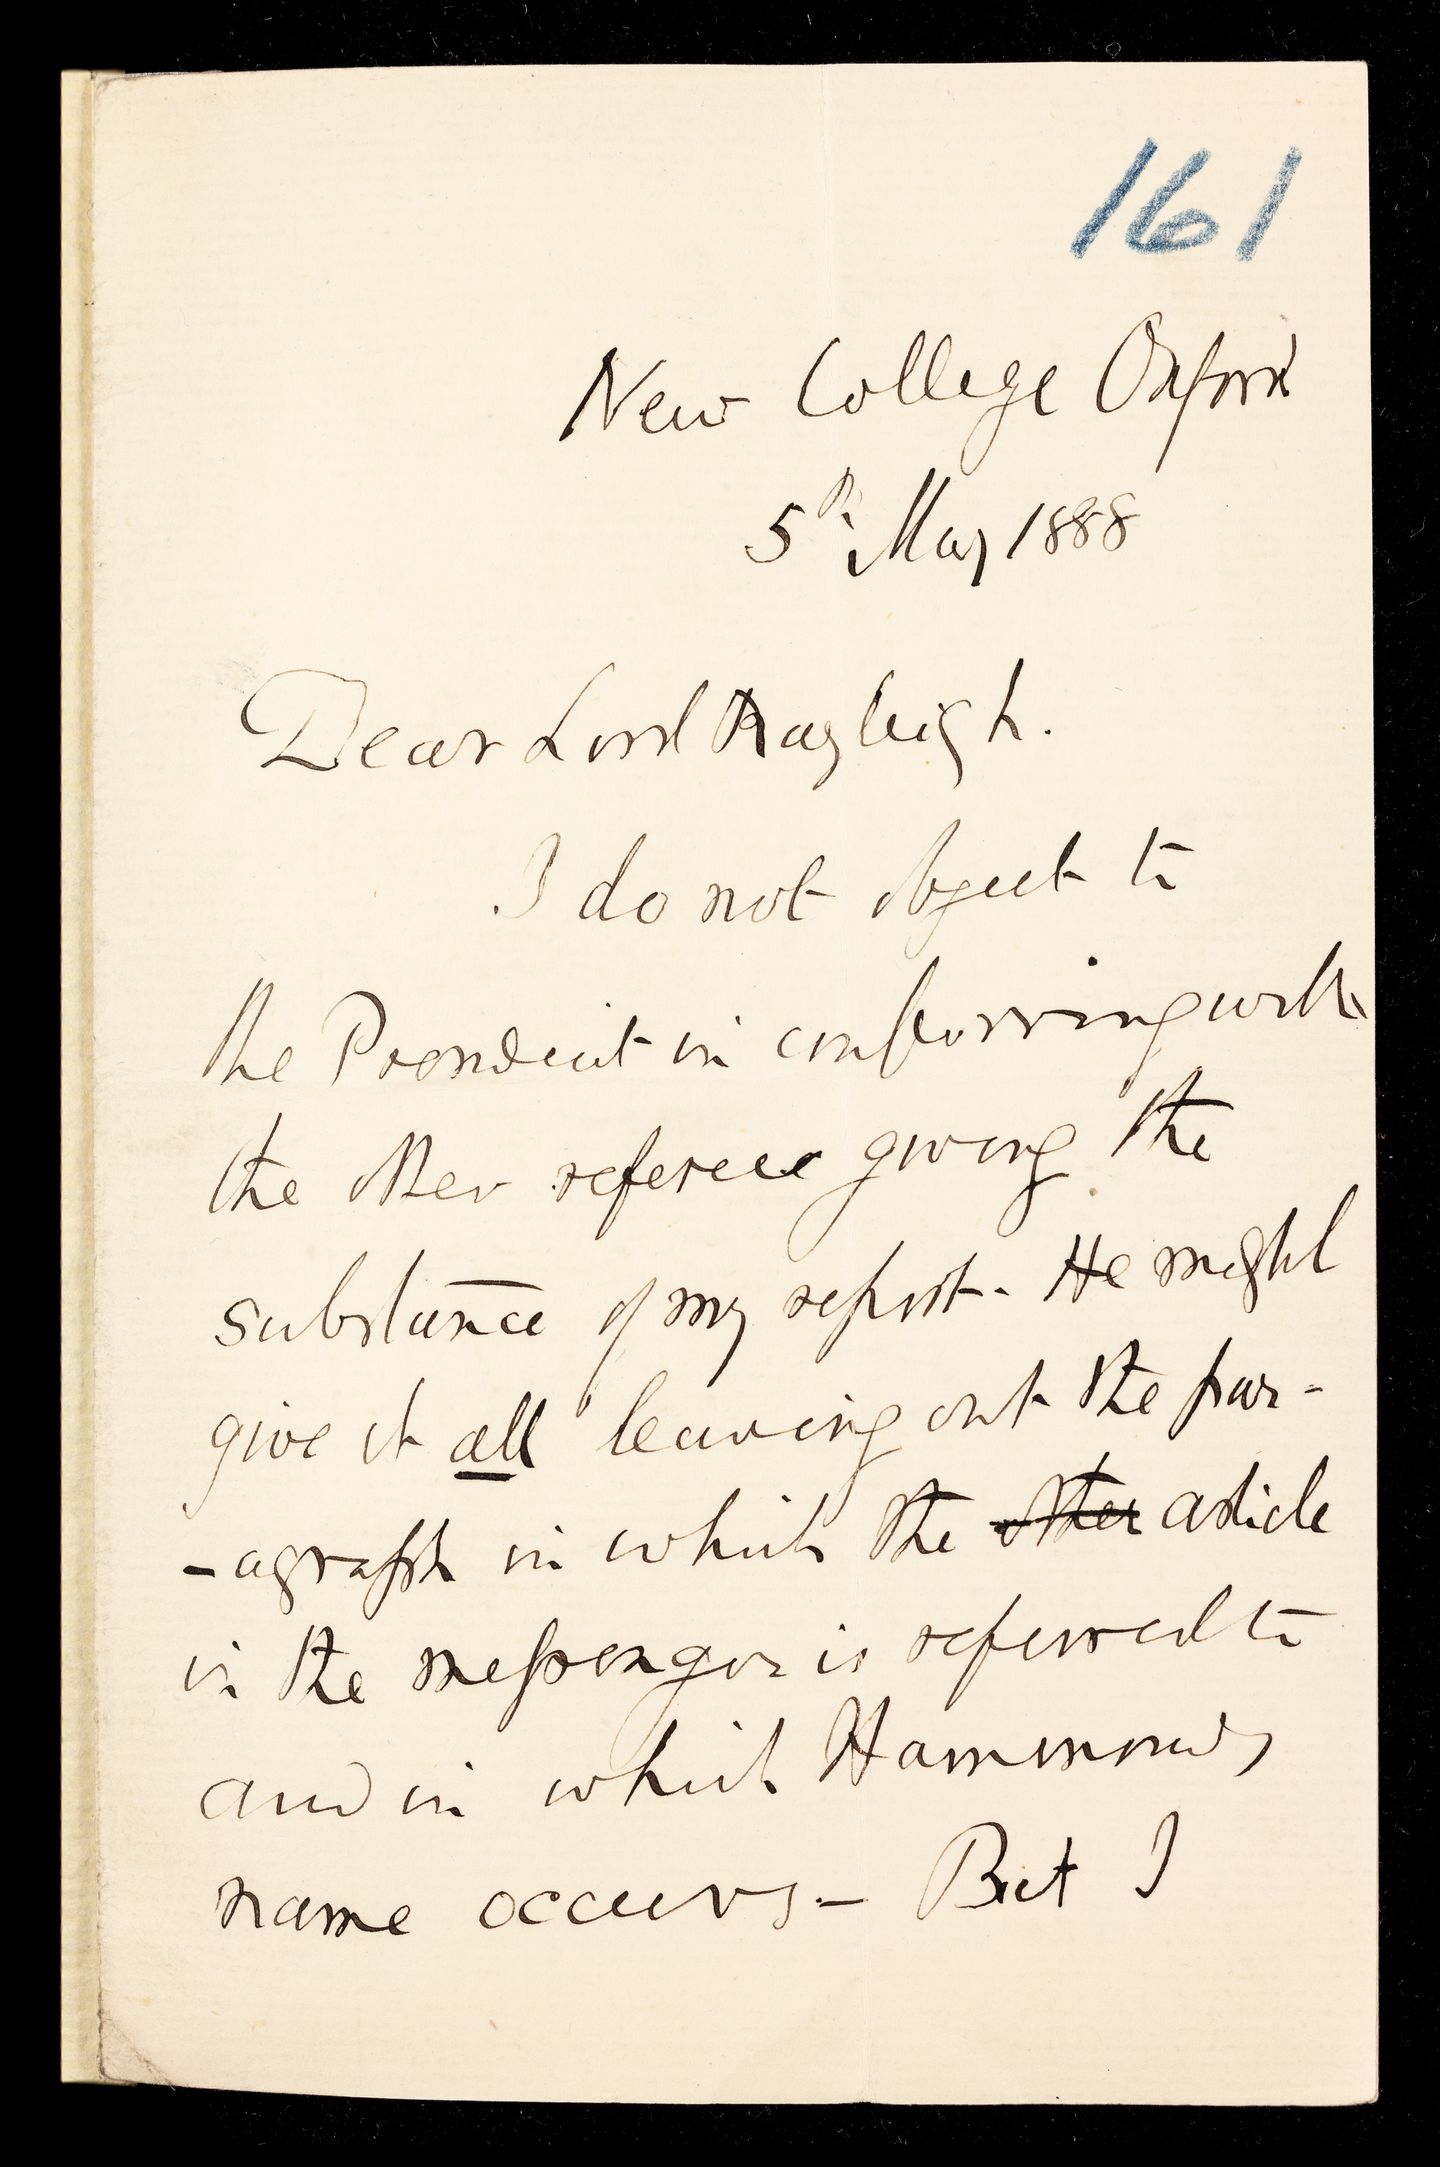 161
New College Oxford
5th May 1888
Dear Lord Rayleigh.
I do not object to
the President in conferring with
the other referee giving the
substance of my report. He might
give it all leaving out the par-
-agraph in which the other article
in the messenger is referred to
and in which Hammonds
name occurs - But I